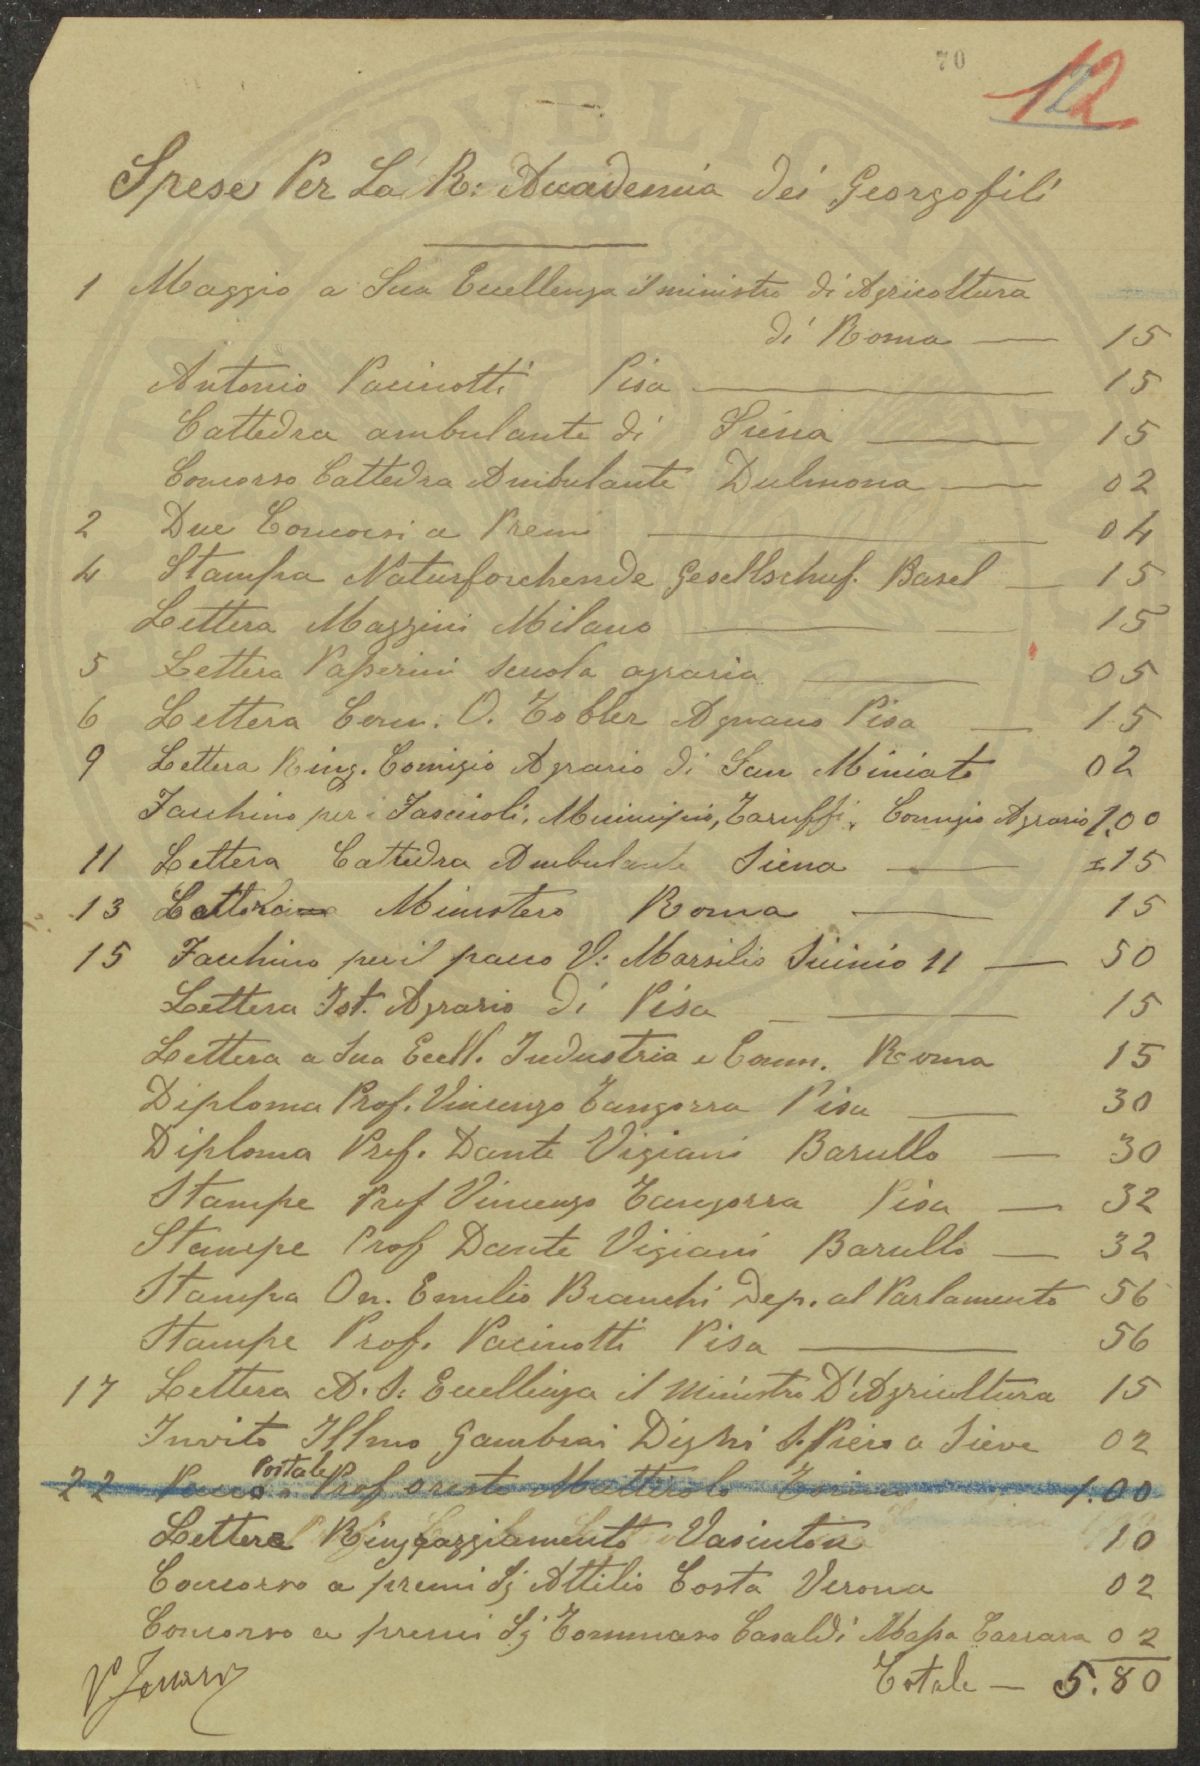 70
12
Spese Per La R: Accademia dei Georgofili
1 Maggio a Sua Eccellenza il ministro di Agricoltura
di Roma — 15
Antonio Pacinotti Pisa — 15
Cattedra ambulante di Siena — 15
Concorso Cattedra Ambulante Sulmona — 02
2 Due Concorsi a Premi — 04
4 Stampa Naturforchende Gesellschaf. Basel — 15
Lettera Mazzini Milano — 15
5 Lettera Passerini scuola agraria — 05
6 Lettera Com. O. Tobler Agnano Pisa — 15
9 Lettera Ring. Comizio Agrario di San Miniato 02
Facchino per i Fascicoli, Municipio, Taruffi, Comizio Agrario 1.00
11 Lettera Cattedra Ambulante Siena — 15
13 Lettera Ministero Roma — 15
15 Facchino per il pacco V: Marsilio Ficinio 11 — 50
Lettera Ist. Agrario di Pisa — 15
Lettera a Sua Ecell. Industria e Comm. Roma 15
Diploma Prof. Vincenzo Tangorra Pisa — 30
Diploma Prof. Dante Vigiani Barullo — 30
Stampe Prof Vincenzo Tangorra Pisa — 32
Stampe Prof Dante Vigiani Barullo — 32
Stampa On. Emilio Bianchi Dep. al Parlamento 56
Stampe Prof. Pacinotti Pisa — 56
17 Lettera A. S. Eccellenza il Ministro D'Agricultura 15
Invito Illmo Gambrai Dighi S. Piero a Sieve 02
Postale
22 Pacco a Prof. Oreste Mattirolo Torino 1.00
Lettera Ringraziamento Vasinton 10
Concorso a premi Sj Attilio Costa Verona 02
Concorso a premi Sj Tommaso Casaldi Massa Carrara 02
Totale — 5.80